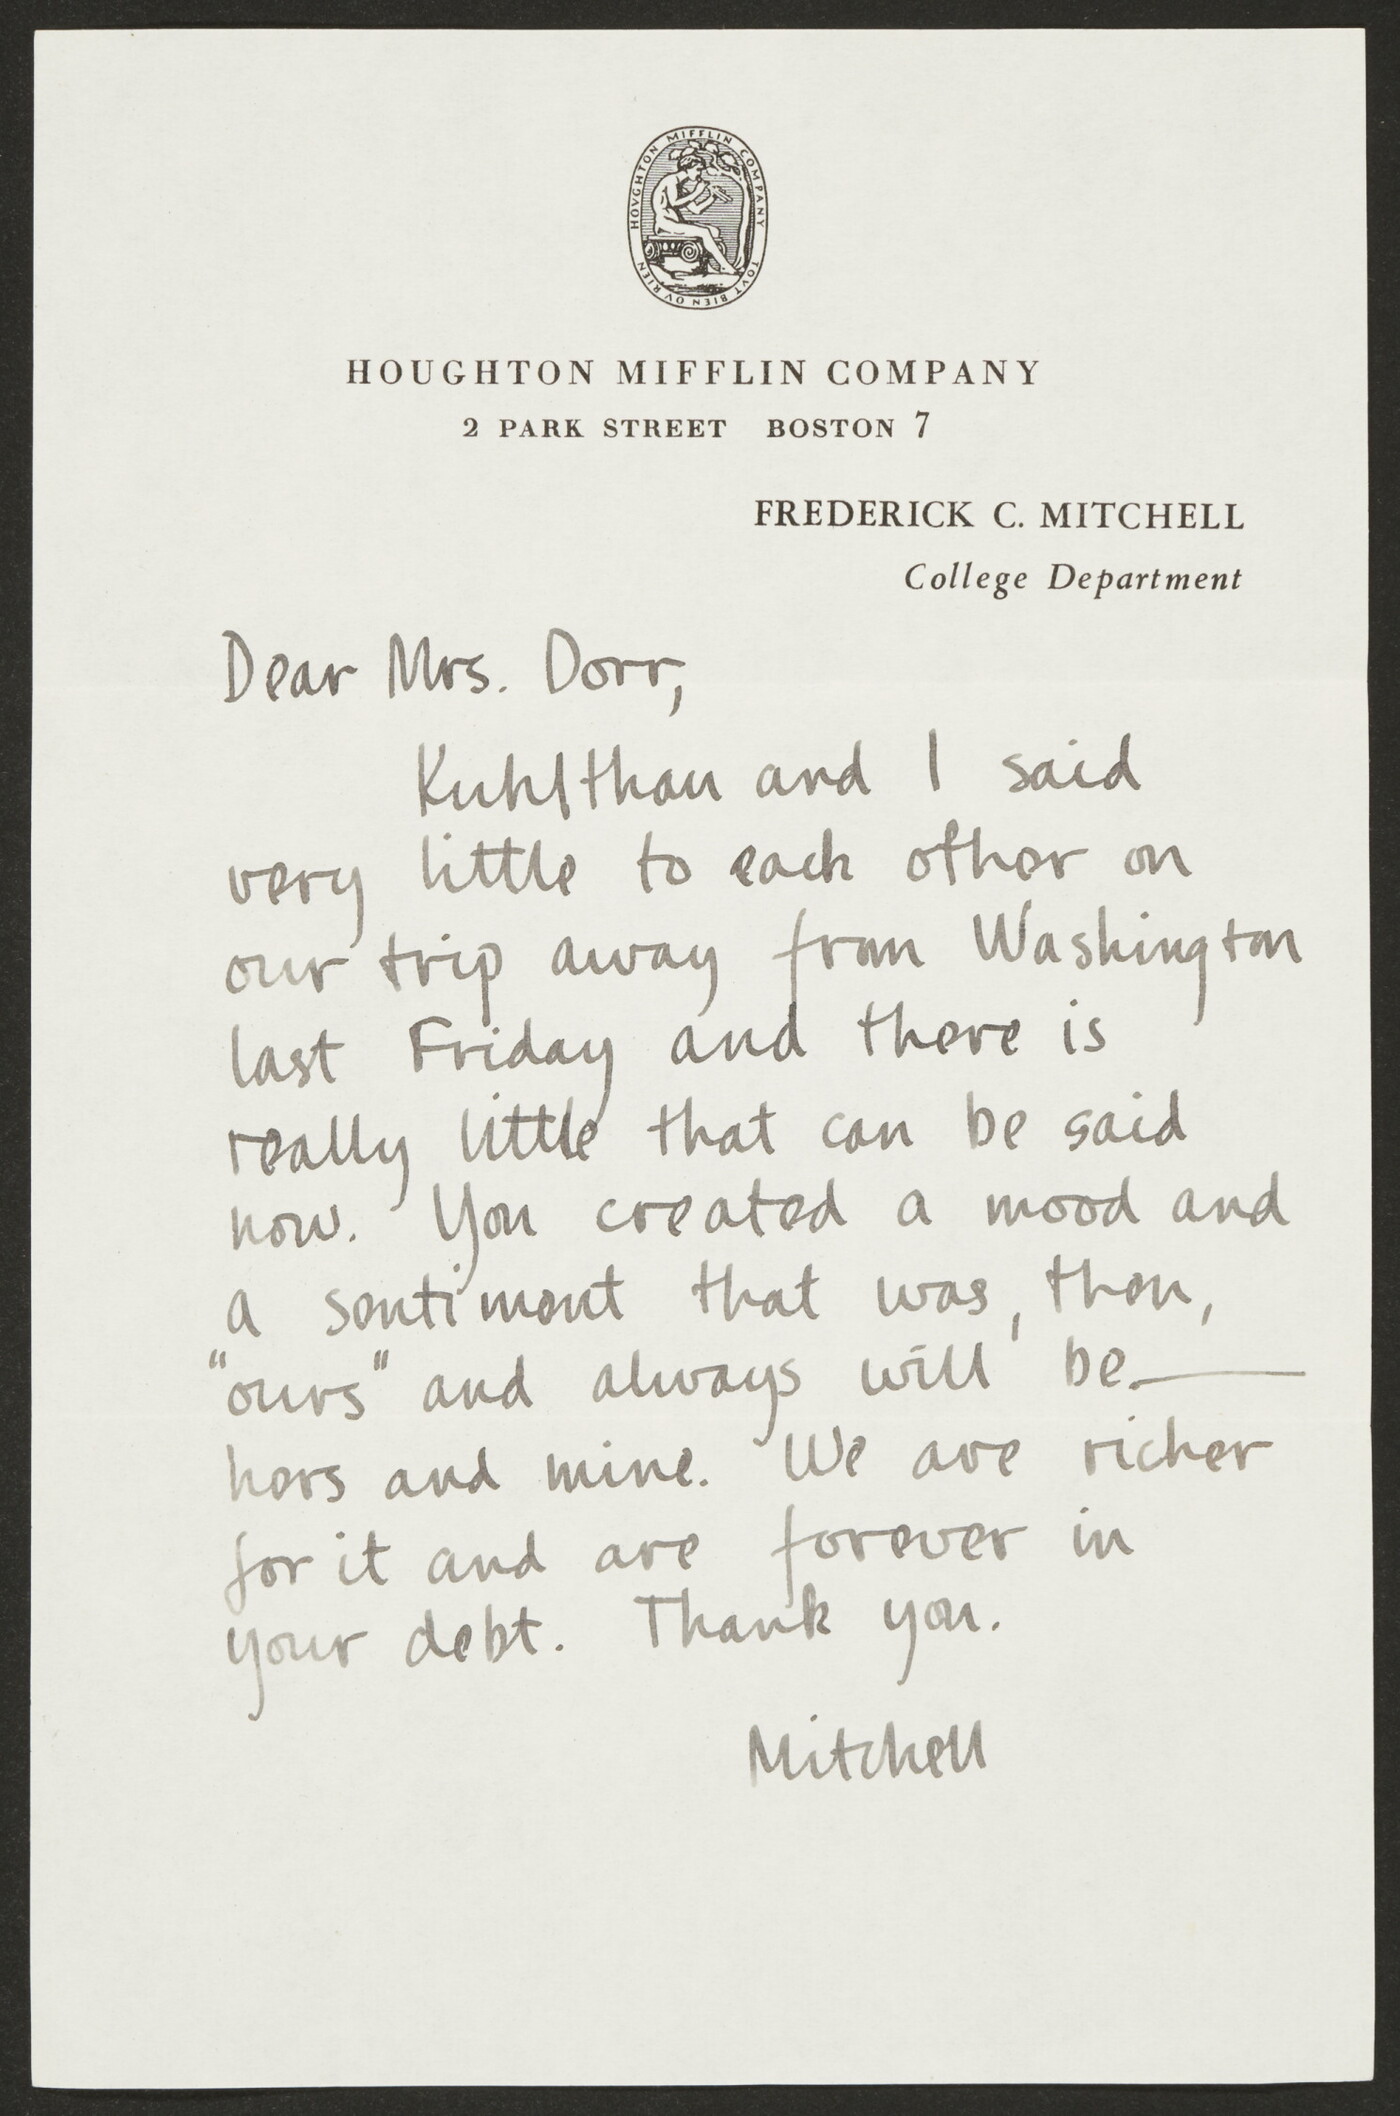 HOVGHTON MIFFLIN COMPANY
TOVT BIEN OV RIEN
HOUGHTON MIFFLIN COMPANY
2 PARK STREET BOSTON 7
FREDERICK C. MITCHELL
College Department
Dear Mrs. Dorr,
Kuhlthau and I said
very little to each other on
our trip away from Washington
last Friday and there is
really little that can be said
now. You created a mood and
a sentiment that was, then,
"ours" and always will be —
hers and mine. We are richer
for it and are forever in
your debt. Thank you.
Mitchell